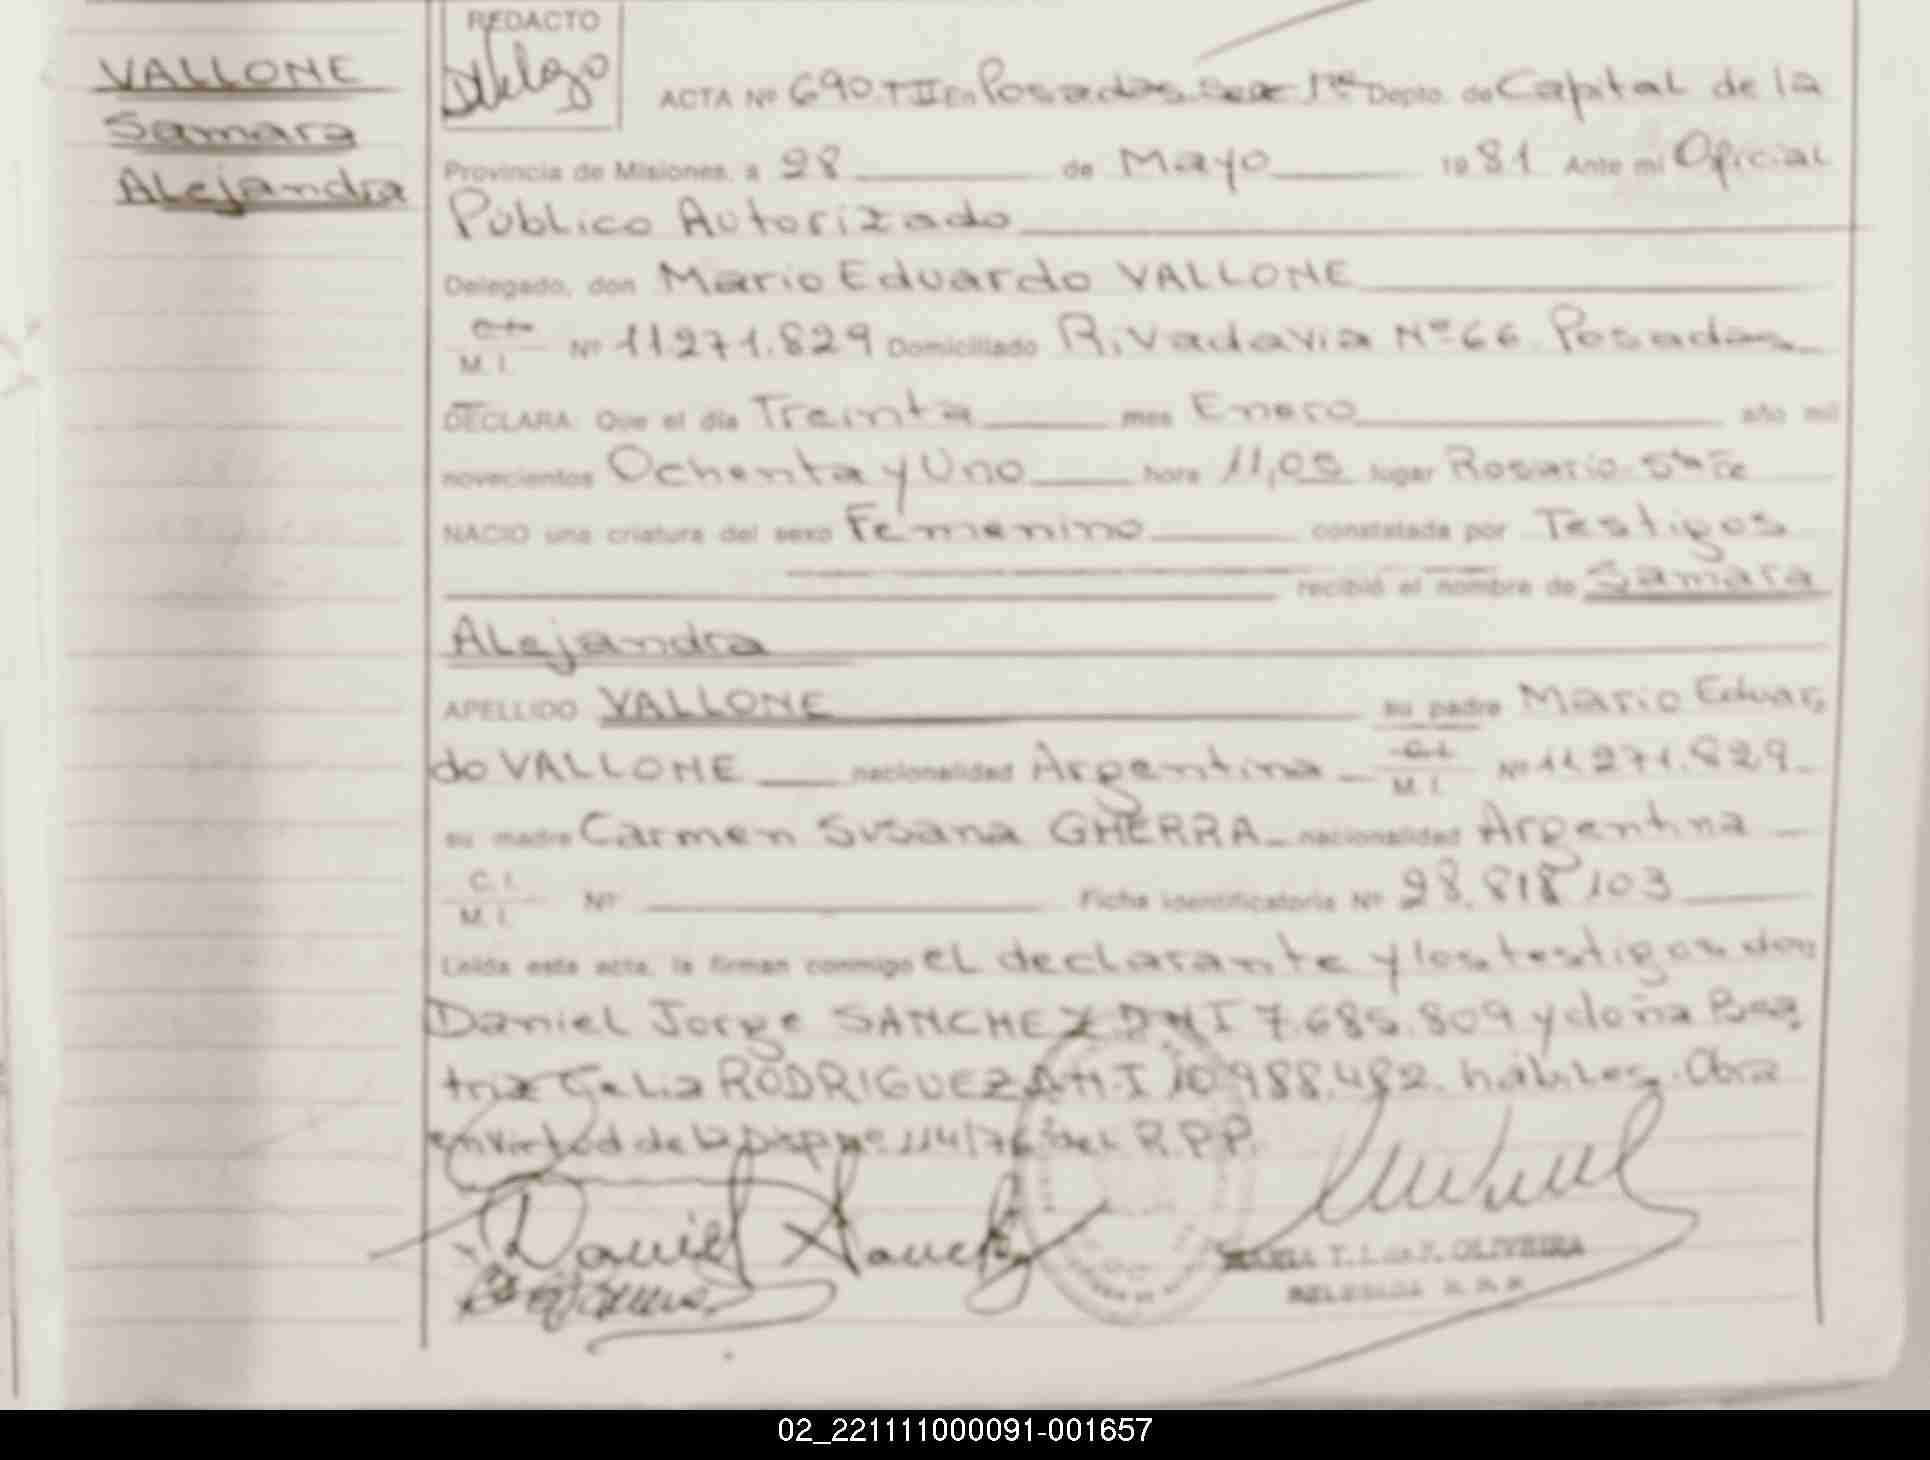 VALLONE
Samara
Alejandra
REDACTO
ACTA Nº 690. T II En Posadas. Sec 1ra Depto. de Capital de la
Provincia de Misiones, a 28 de Mayo 1981 Ante mi Oficial
Público Autorizado
Delegado, don Mario Eduardo VALLONE
M. I. Nº 11.271.829 Domiciliado Rivadavia Nº 66. Posadas
DECLARA: Que el día Treinta mes Enero año mil
novecientos Ochenta y Uno hora 11,05 lugar Rosario Sta Fe
NACIO una criatura del sexo Femenino constatada por Testigos
recibió el nombre de Samara
Alejandra
APELLIDO VALLONE su padre Mario Eduar
do VALLONE nacionalidad Argentina C.I. M. I. Nº 11.271.829
su madre Carmen Susana GHERRA nacionalidad Argentina
C. I. M. I. Nº Ficha identificatoria Nº 28.818.103
Leída esta acta, la firman conmigo el declarante y los testigos don
Daniel Jorge SANCHEZ DNI 7.685.809 y doña Bea
triz Celia RODRIGUEZ D.N.I 10.988.482. hábiles. Obra
en virtud de la Disp nº 114/76 del R.P.P.
Daniel Sanchez
MARIA T. L. de F. OLIVEIRA
DELEGADA R. P. P.
02_221111000091-001657